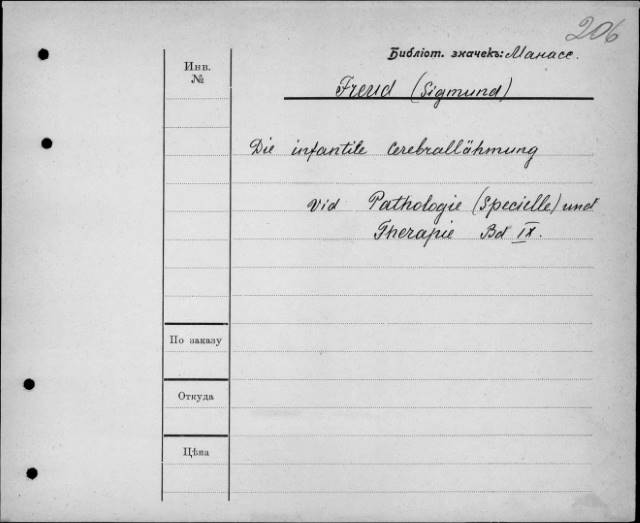 206
Библіот. значекъ: Манасс.
Инв.
№
Freud (Sigmund)
Die infantile Cerebrallähmung
Vid Pathologie (Specielle) und
Therapie Bd IX.
По заказу
Откуда
Цѣна